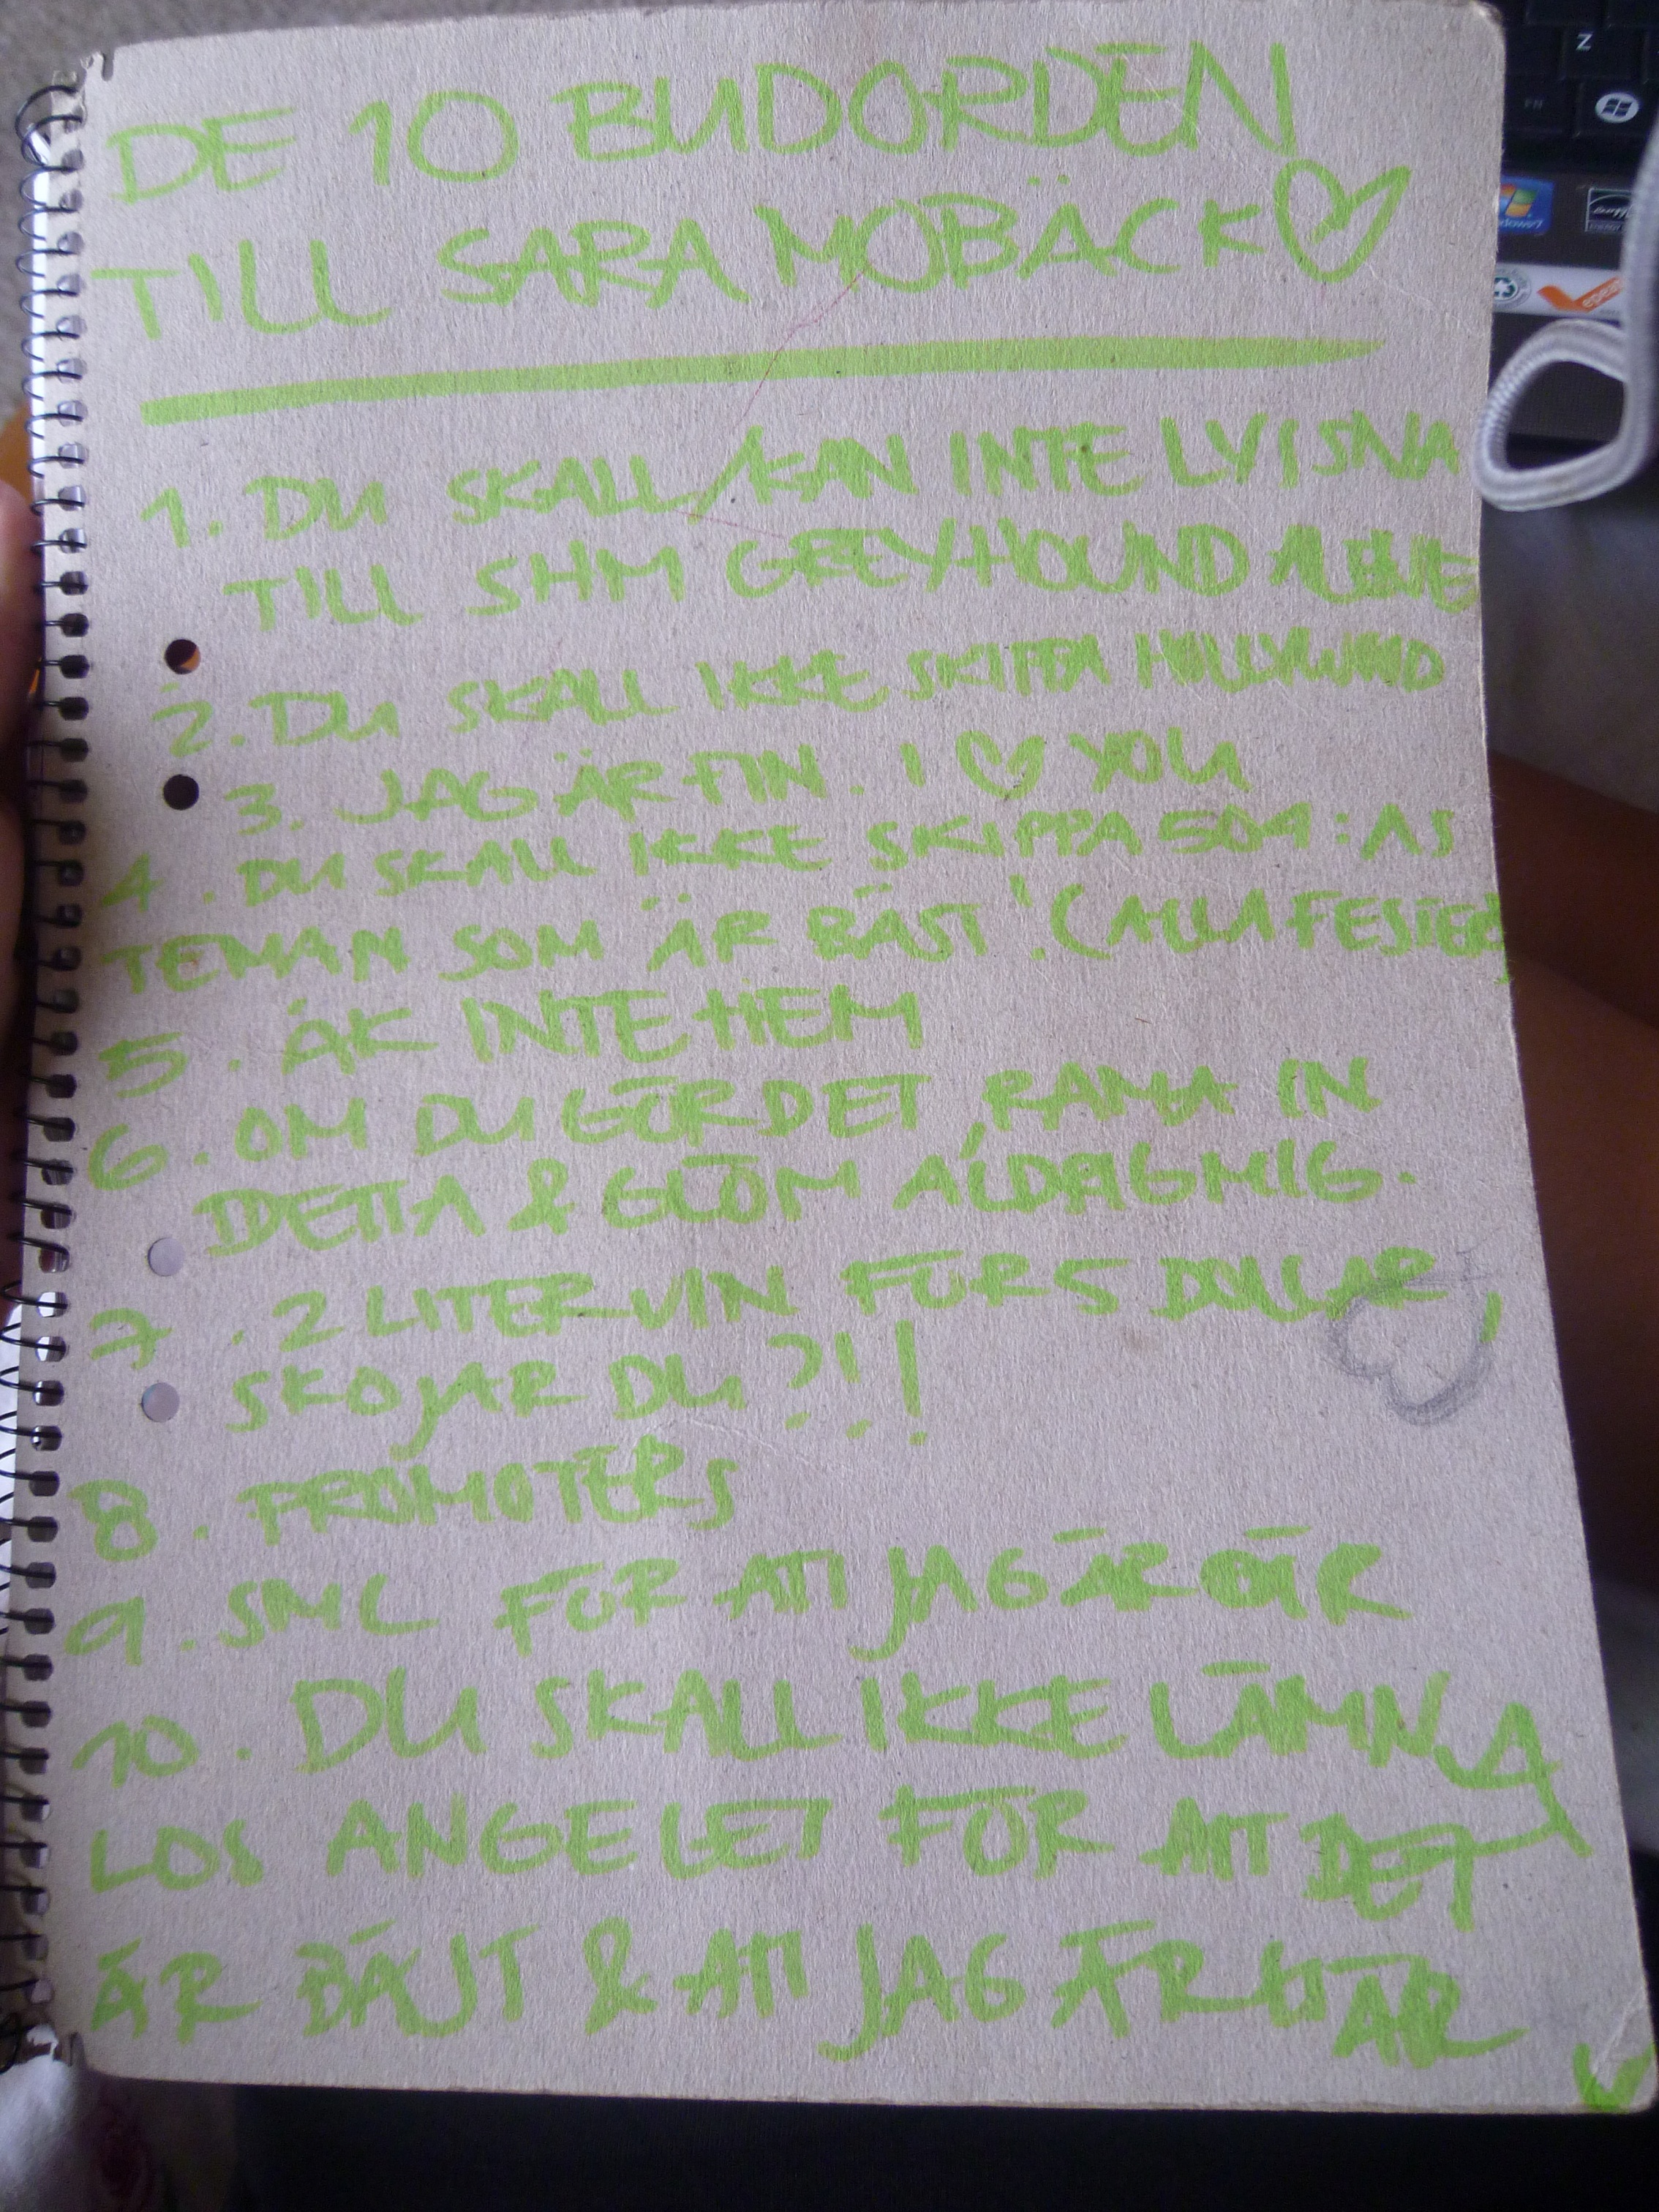 DE 10 BUDORDEN
TILL SARA MOBÄCK
1. DU SKALL/KAN INTE LYISNA
TILL SHM GREYHOUND ALENE
2. DU SKALL IKKE SKIPPA HOLLYWOOD
3. JAG ÄR FIN. I ♡ YOU
4. DU SKALL IKKE SKIPPA 504:AS
TEMAN SOM ÄR BÄST! (ALLA FESTER)
5. ÅK INTE HEM
6. OM DU GÖR DET RAMA IN
DETTA & GLÖM ALDRIG MIG.
7. 2 LITER VIN FÖR 5 DOLLAR,
SKOJAR DU?!!
8. PROMOTERS
9. SMC FÖR ATT JAG ÄR DÄR
10. DU SKALL IKKE LÄMNA
LOS ANGELET FÖR ATT DET
ÄR BÄJT & ATT JAG ÄR KÄR
Z
FN
epeat